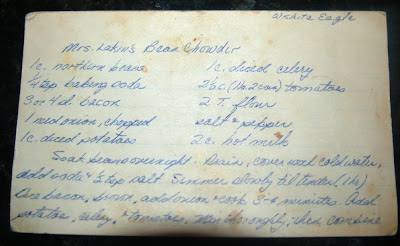 Wichita Eagle
Mrs. Lakin's Bean Chowder
1 c. northern beans 1 c. diced celery
¼ tsp baking soda 2½ c. (No. 2 can) tomatoes
3 or 4 sl. bacon 2 T. flour
1 med onion, chopped salt & pepper
1 c. diced potatoes 2 c. hot milk
Soak beans overnight. Drain, cover with cold water,
add soda & ½ tsp salt. Simmer slowly til tender (1 hr)
Dice bacon, brown, add onion & cook 3-4 minutes. Add
potatoes, celery, & tomatoes. Mix thoroughly, then combine